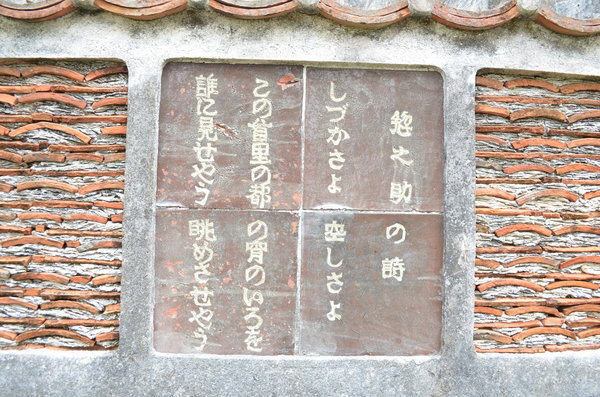 惣之助の詩
しづかさよ 空しさよ
この首里の都の宵のいろを
誰に見せやう 眺めさせやう